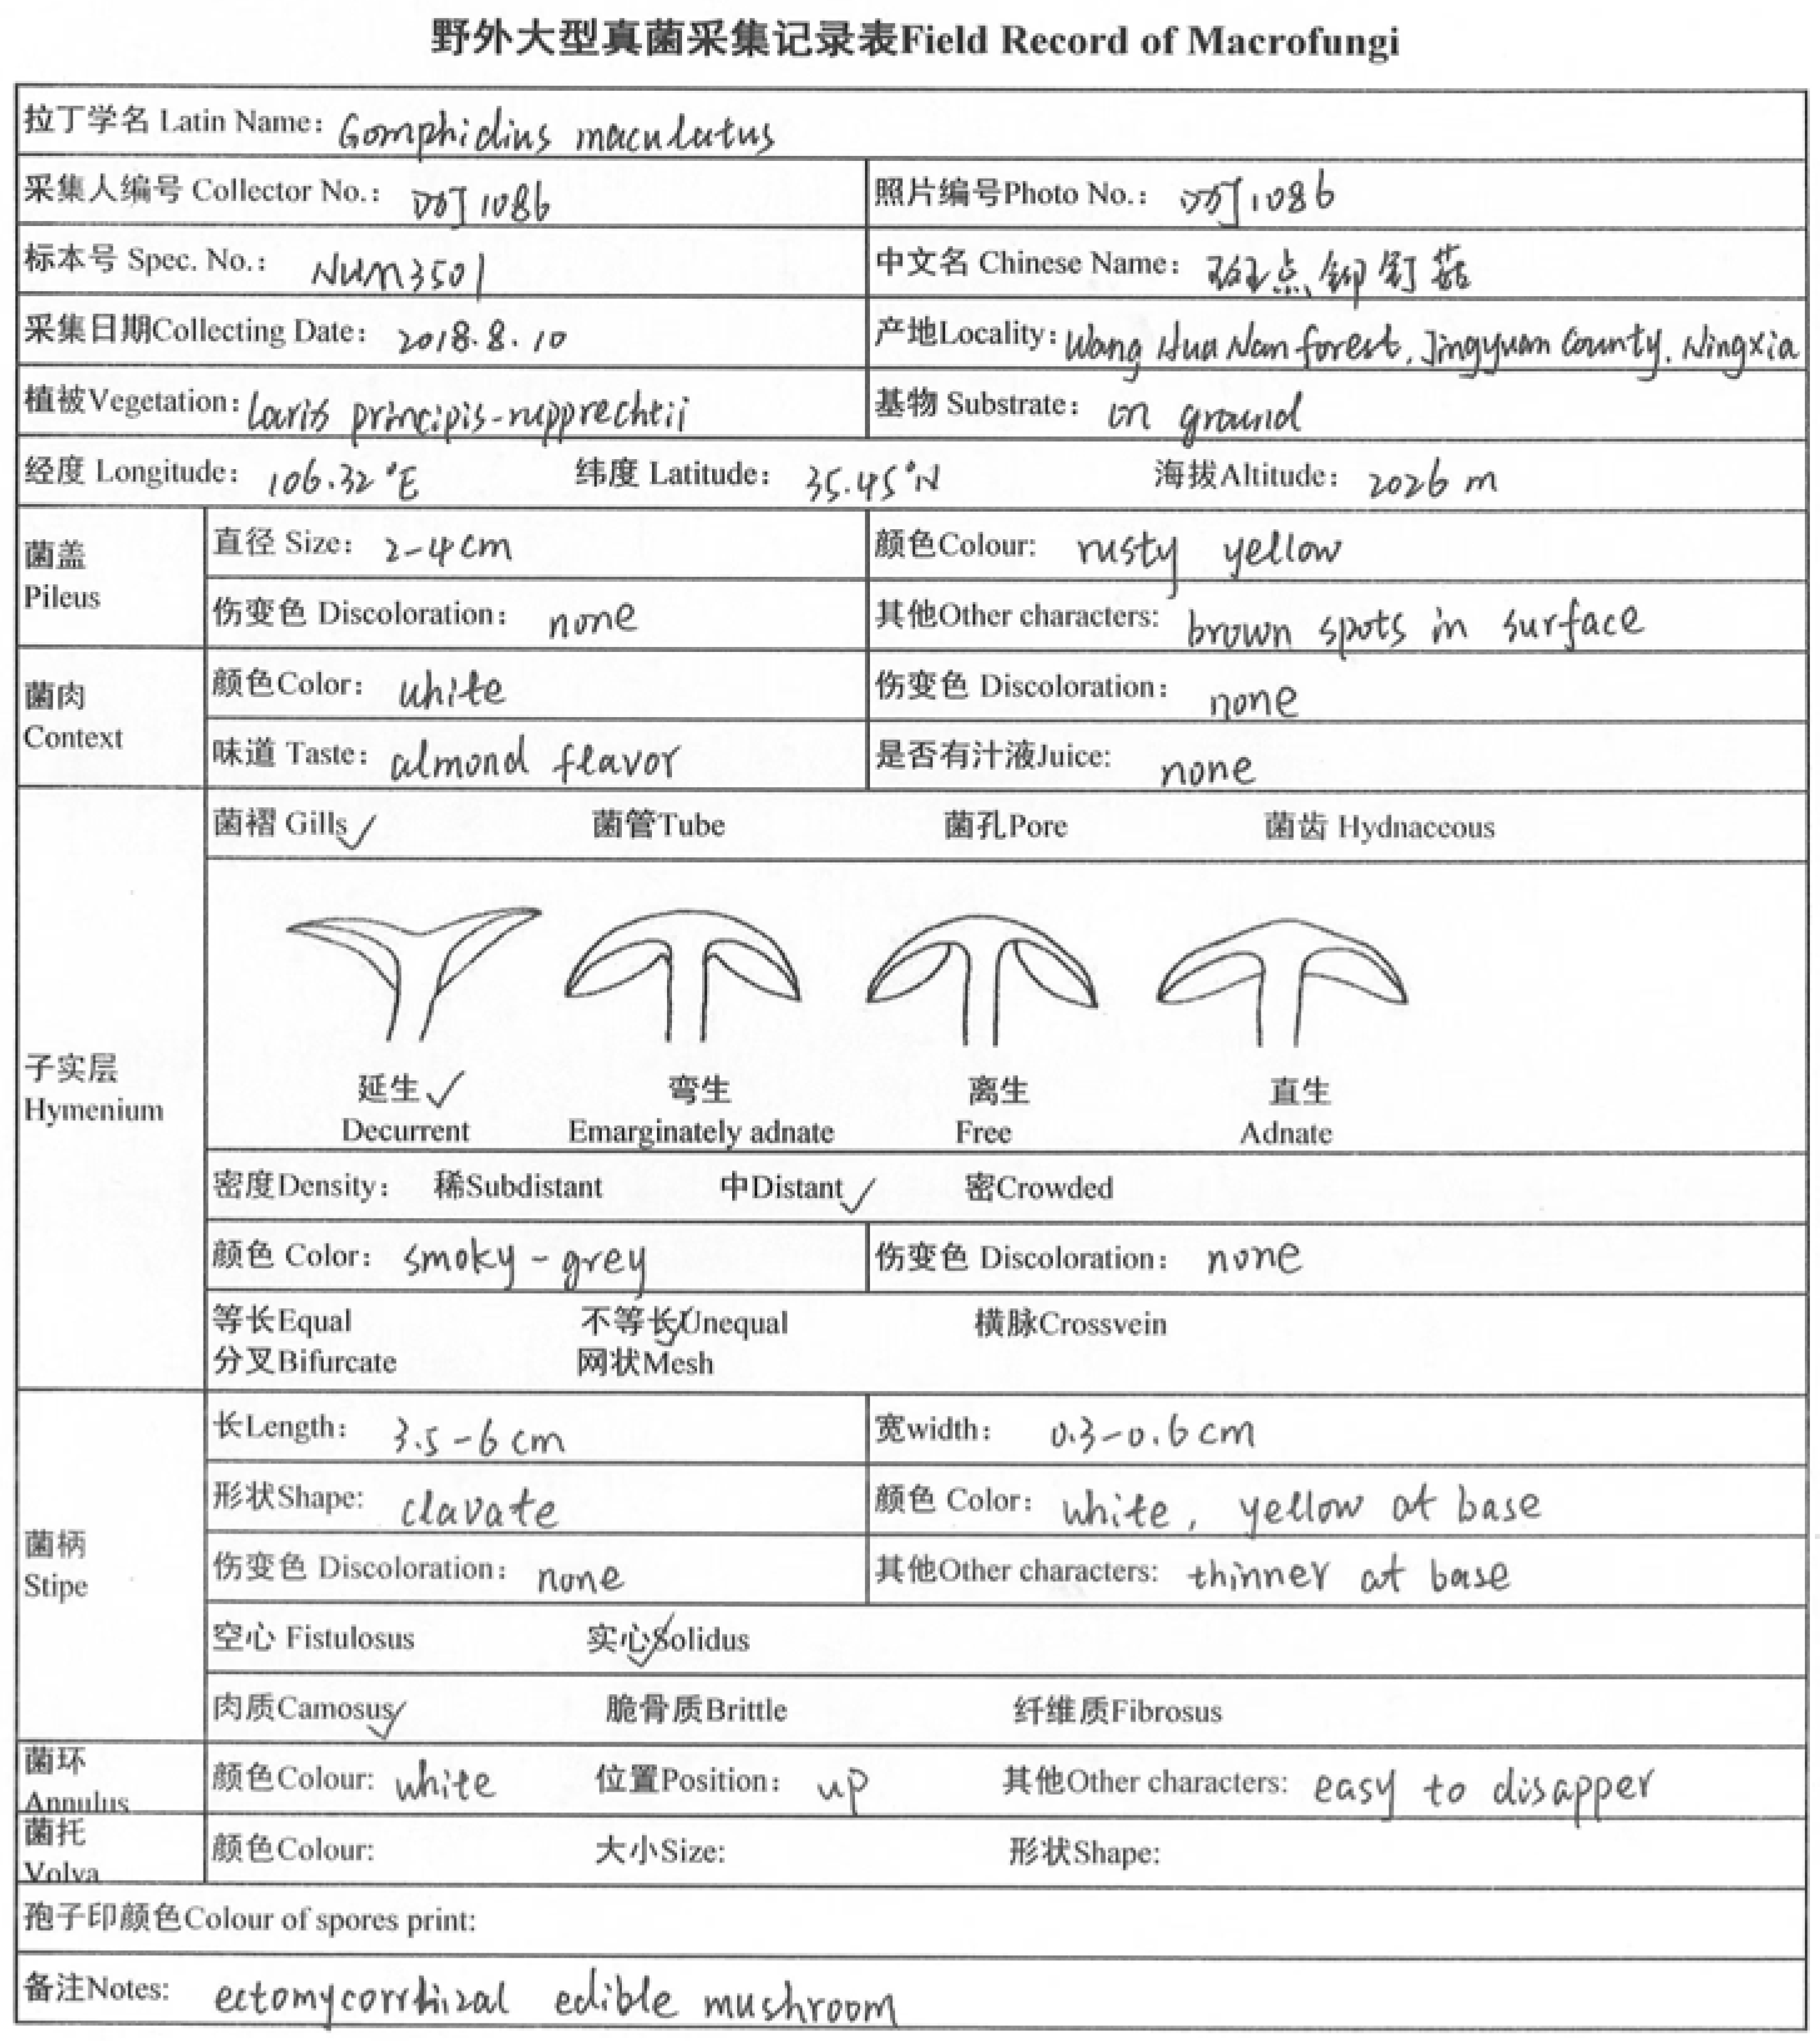 野外大型真菌采集记录表Field Record of Macrofungi
拉丁学名 Latin Name: Gomphidius maculatus
采集人编号 Collector No.: 1086 照片编号Photo No.: 1086
标本号 Spec. No.: NUM3501 中文名 Chinese Name: 斑点铆钉菇
采集日期Collecting Date: 2018.8.10 产地Locality: Wang Hua Nan forest, Jingyuan County, Ningxia
植被Vegetation: Larix principis-rupprechtii 基物 Substrate: on ground
经度 Longitude: 106.32°E 纬度 Latitude: 35.45°N 海拔Altitude: 2026 m
菌盖
Pileus
直径 Size: 2-4cm 颜色Colour: rusty yellow
伤变色 Discoloration: none 其他Other characters: brown spots in surface
菌肉
Context
颜色Color: white 伤变色 Discoloration: none
味道 Taste: almond flavor 是否有汁液Juice: none
子实层
Hymenium
菌褶 Gills✓ 菌管Tube 菌孔Pore 菌齿 Hydnaceous
延生✓ 弯生 离生 直生
Decurrent Emarginately adnate Free Adnate
密度Density: 稀Subdistant 中Distant✓ 密Crowded
颜色 Color: smoky-grey 伤变色 Discoloration: none
等长Equal 不等长✓Unequal 横脉Crossvein
分叉Bifurcate 网状Mesh
菌柄
Stipe
长Length: 3.5-6 cm 宽width: 0.3-0.6cm
形状Shape: clavate 颜色 Color: white, yellow at base
伤变色 Discoloration: none 其他Other characters: thinner at base
空心 Fistulosus 实心✓Solidus
肉质Camosus✓ 脆骨质Brittle 纤维质Fibrosus
菌环
Annulus
颜色Colour: white 位置Position: up 其他Other characters: easy to disapper
菌托
Volva
颜色Colour: 大小Size: 形状Shape:
孢子印颜色Colour of spores print:
备注Notes: ectomycorrhizal edible mushroom